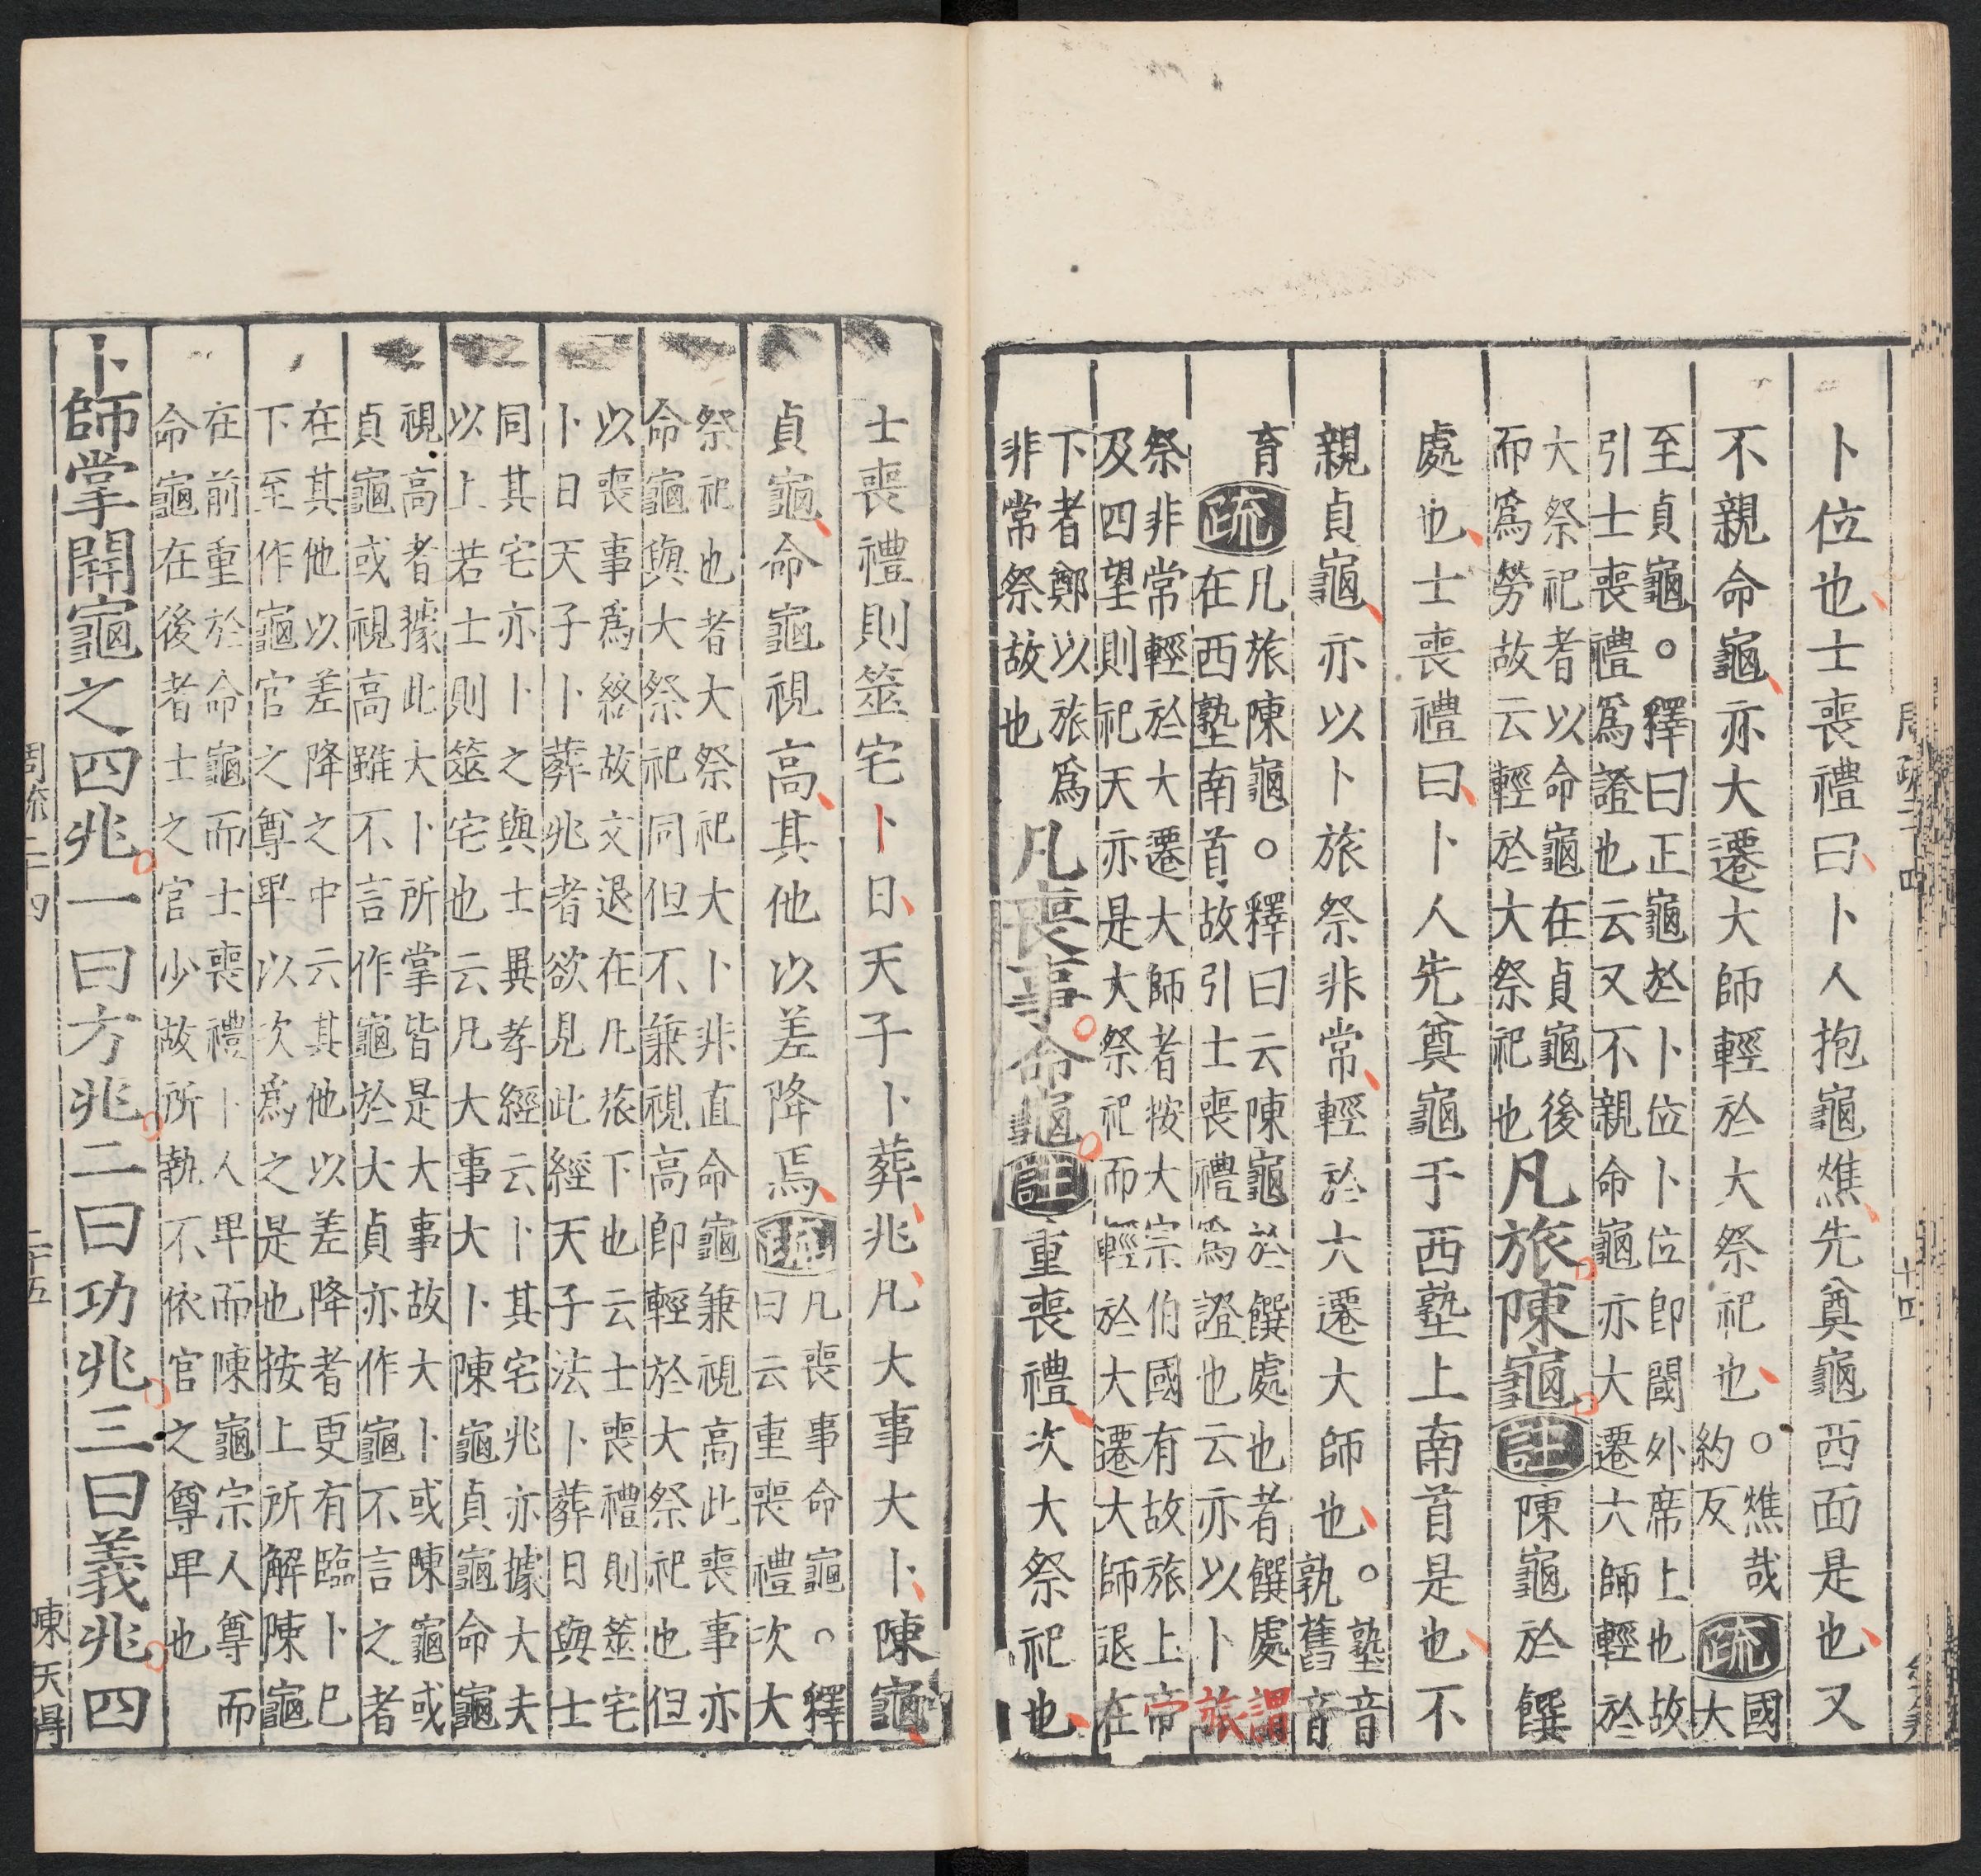 卜位也士喪禮曰卜人抱龜燋先奠龜西面是也又
不親命龜亦大遷大師輕於大祭祀也○燋哉約反疏國大
至貞龜○釋曰正龜於卜位卜位即閾外席上也故
引士喪禮爲證也云又不親命龜亦大遷大師輕於
大祭祀者以命龜在貞龜後
而爲勞故云輕於大祭祀也凡旅陳龜註陳龜於饌
處也士喪禮曰卜人先奠龜于西塾上南首是也不
親貞龜亦以卜旅祭非常輕於大遷大師也○塾音孰舊音
育疏凡旅陳龜○釋曰云陳龜於饌處也者饌處謂
在西塾南首故引士喪禮爲證也云亦以卜旅
祭非常輕於大遷大師者按大宗伯國有故旅上帝
及四望則祀天亦是大祭祀而輕於大遷大師退在
下者鄭以旅爲
非常祭故也凡喪事命龜註重喪禮次大祭祀也
士喪禮則筮宅卜日天子卜葬兆凡大事大卜陳龜
貞龜命龜視高其他以差降焉疏凡喪事命龜○釋
曰云重喪禮次大
祭祀也者大祭祀大卜非直命龜兼視高此喪事亦
命龜與大祭祀同但不兼視高即輕於大祭祀也但
以喪事爲終故文退在凡旅下也云士喪禮則筮宅
卜日天子卜葬兆者欲見此經天子法卜葬日與士
同其宅亦卜之與士異孝經云卜其宅兆亦據大夫
以上若士則筮宅也云凡大事大卜陳龜貞龜命龜
視高者據此大卜所掌皆是大事故大卜或陳龜或
貞龜或視高雖不言作龜於大貞亦作龜不言之者
在其他以差降之中云其他以差降者更有臨卜巳
下至作龜官之尊卑以次爲之是也按上所解陳龜
在前重於命龜而士喪禮卜人卑而陳龜宗人尊而
命龜在後者士之官少故所執不依官之尊卑也
卜師掌開龜之四兆一曰方兆二曰功兆三曰義兆四
周疏二十四
二十五
陳天得